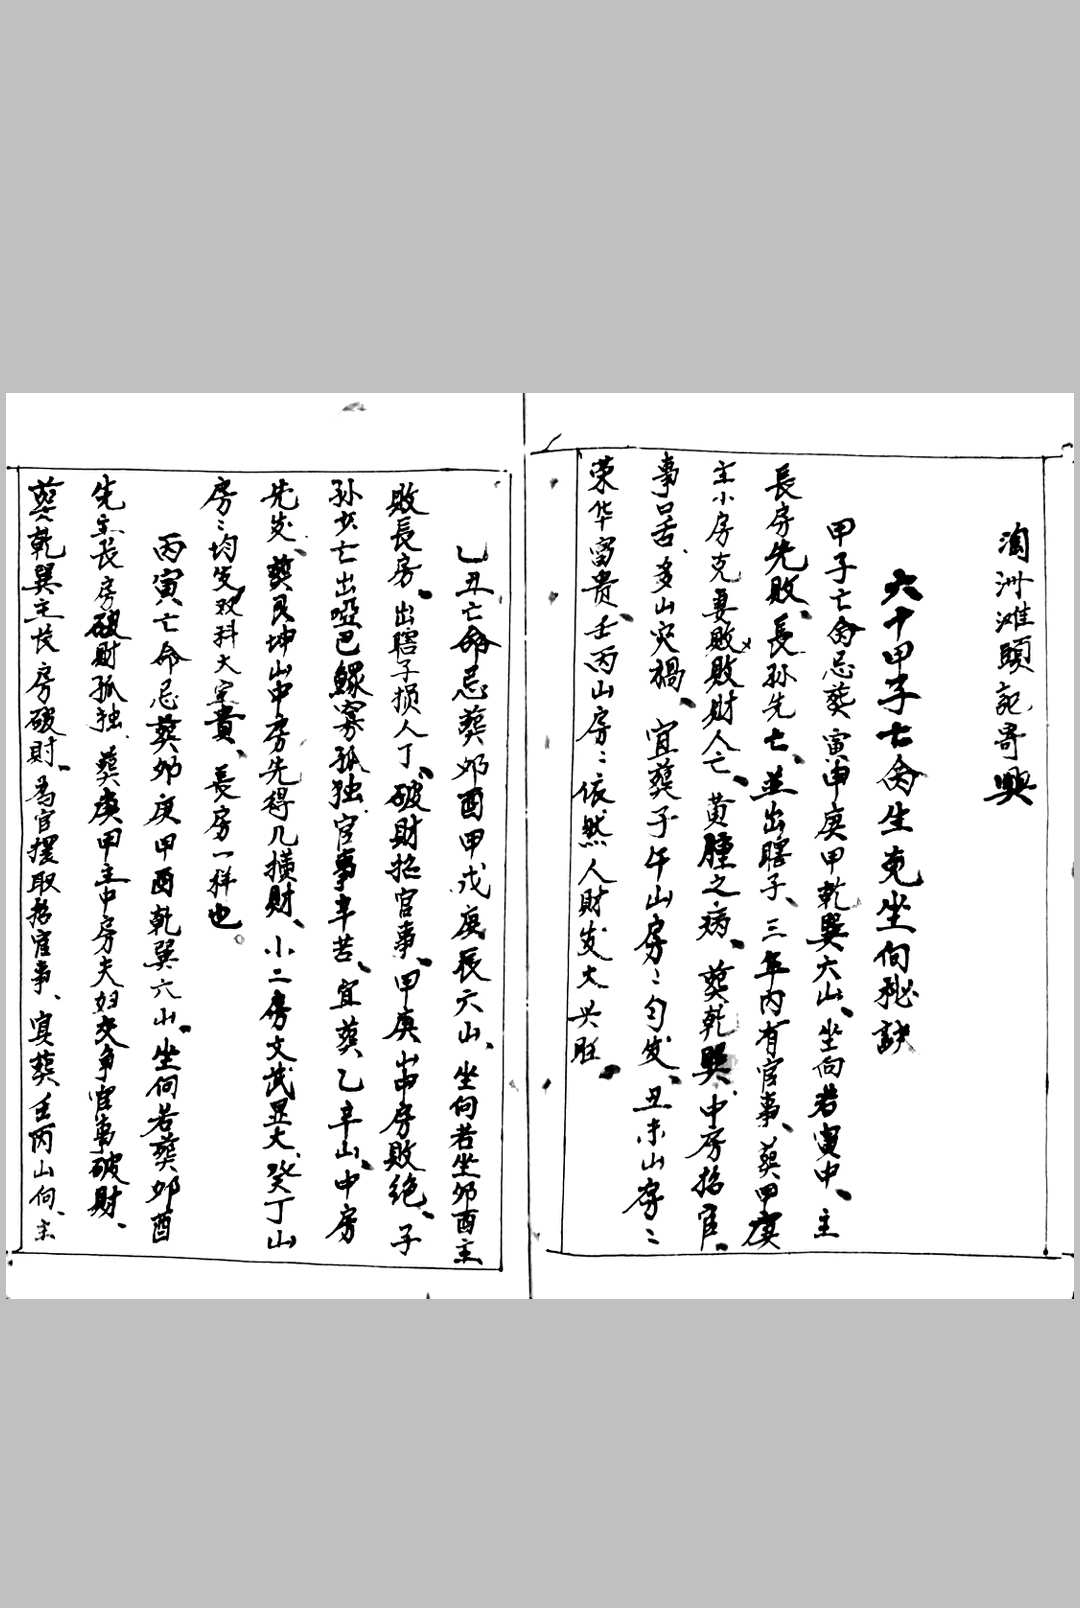 洲滩頭記寄興
六十甲子亡命生克坐向秘訣
甲子亡命忌葬寅申庚甲乾巽六山、坐向若寅申、主
長房先敗、長孙先亡、並出瞎子、三年内有官事、葬甲庚
主小房克妻敗敗財人亡、黄腫之病、葬乾巽中房招官、
事口舌、多山灾禍、宜葬子午山房〻匀发、丑未山房〻
荣华富贵、壬丙山房〻依然人財发大兴旺、
乙丑亡命忌葬卯酉甲戌庚辰六山、坐向若坐卯酉主
敗長房、出瞎子损人丁、破財招官事、甲庚山中房敗绝、子
孙少亡出啞巴鰥寡孤独官事辛苦、宜葬乙辛山、中房
先发、葬艮坤山中房先得几横財、小二房文武显大、癸丁山
房〻均发双科大富貴、長房一样也。
丙寅亡命忌葬卯庚甲酉乾巽六山、坐向若葬卯酉
先主長房破財孤独、葬庚甲主中房夫妇交争官事破財、
葬乾巽主长房破財、為官取招官事、宜葬壬丙山向、主